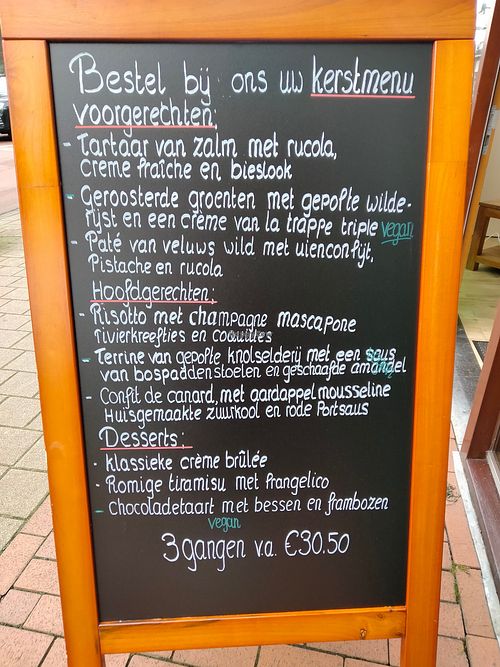 Bestel bij ons uw kerstmenu
voorgerechten:
- Tartaar van zalm met rucola,
creme fraîche en bieslook
- Geroosterde groenten met gepofte wilde-
rijst en een crème van la trappe triple vegan
- Paté van veluws wild met uienconfijt,
Pistache en rucola
Hoofdgerechten:
- Risotto met champagne mascapone
rivierkreeftjes en coquilles
- Terrine van gepofte knolselderij met een saus
van bospaddenstoelen en geschaafde amandel
- Confit de canard, met aardappelmousseline
Huisgemaakte zuurkool en rode Portsaus
Desserts:
- klassieke crème brûlée
- Romige tiramisu met frangelico
- Chocoladetaart met bessen en frambozen
vegan
3 gangen v.a. €30.50